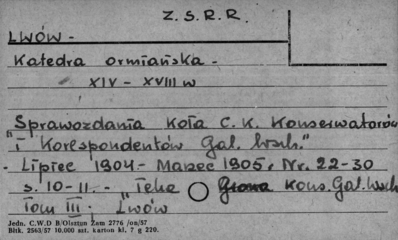 Z. S. R. R.
LWÓW -
Katedra ormiańska -
XIV - XVIII w
"Sprawozdania Koła C. K. Konserwatorów
i Korespondentów Gal. wsch."
- Lipiec 1904 - Marzec 1905, Nr. 22-30
s. 10-11. - "Teka Grona Kons. Gal. wsch
Tom III - Lwów
Jedn. C.W.D B/Olsztyn Zam 2776 /on/57
Bltk. 2563/57 10.000 szt. karton kl. 7 g 220.